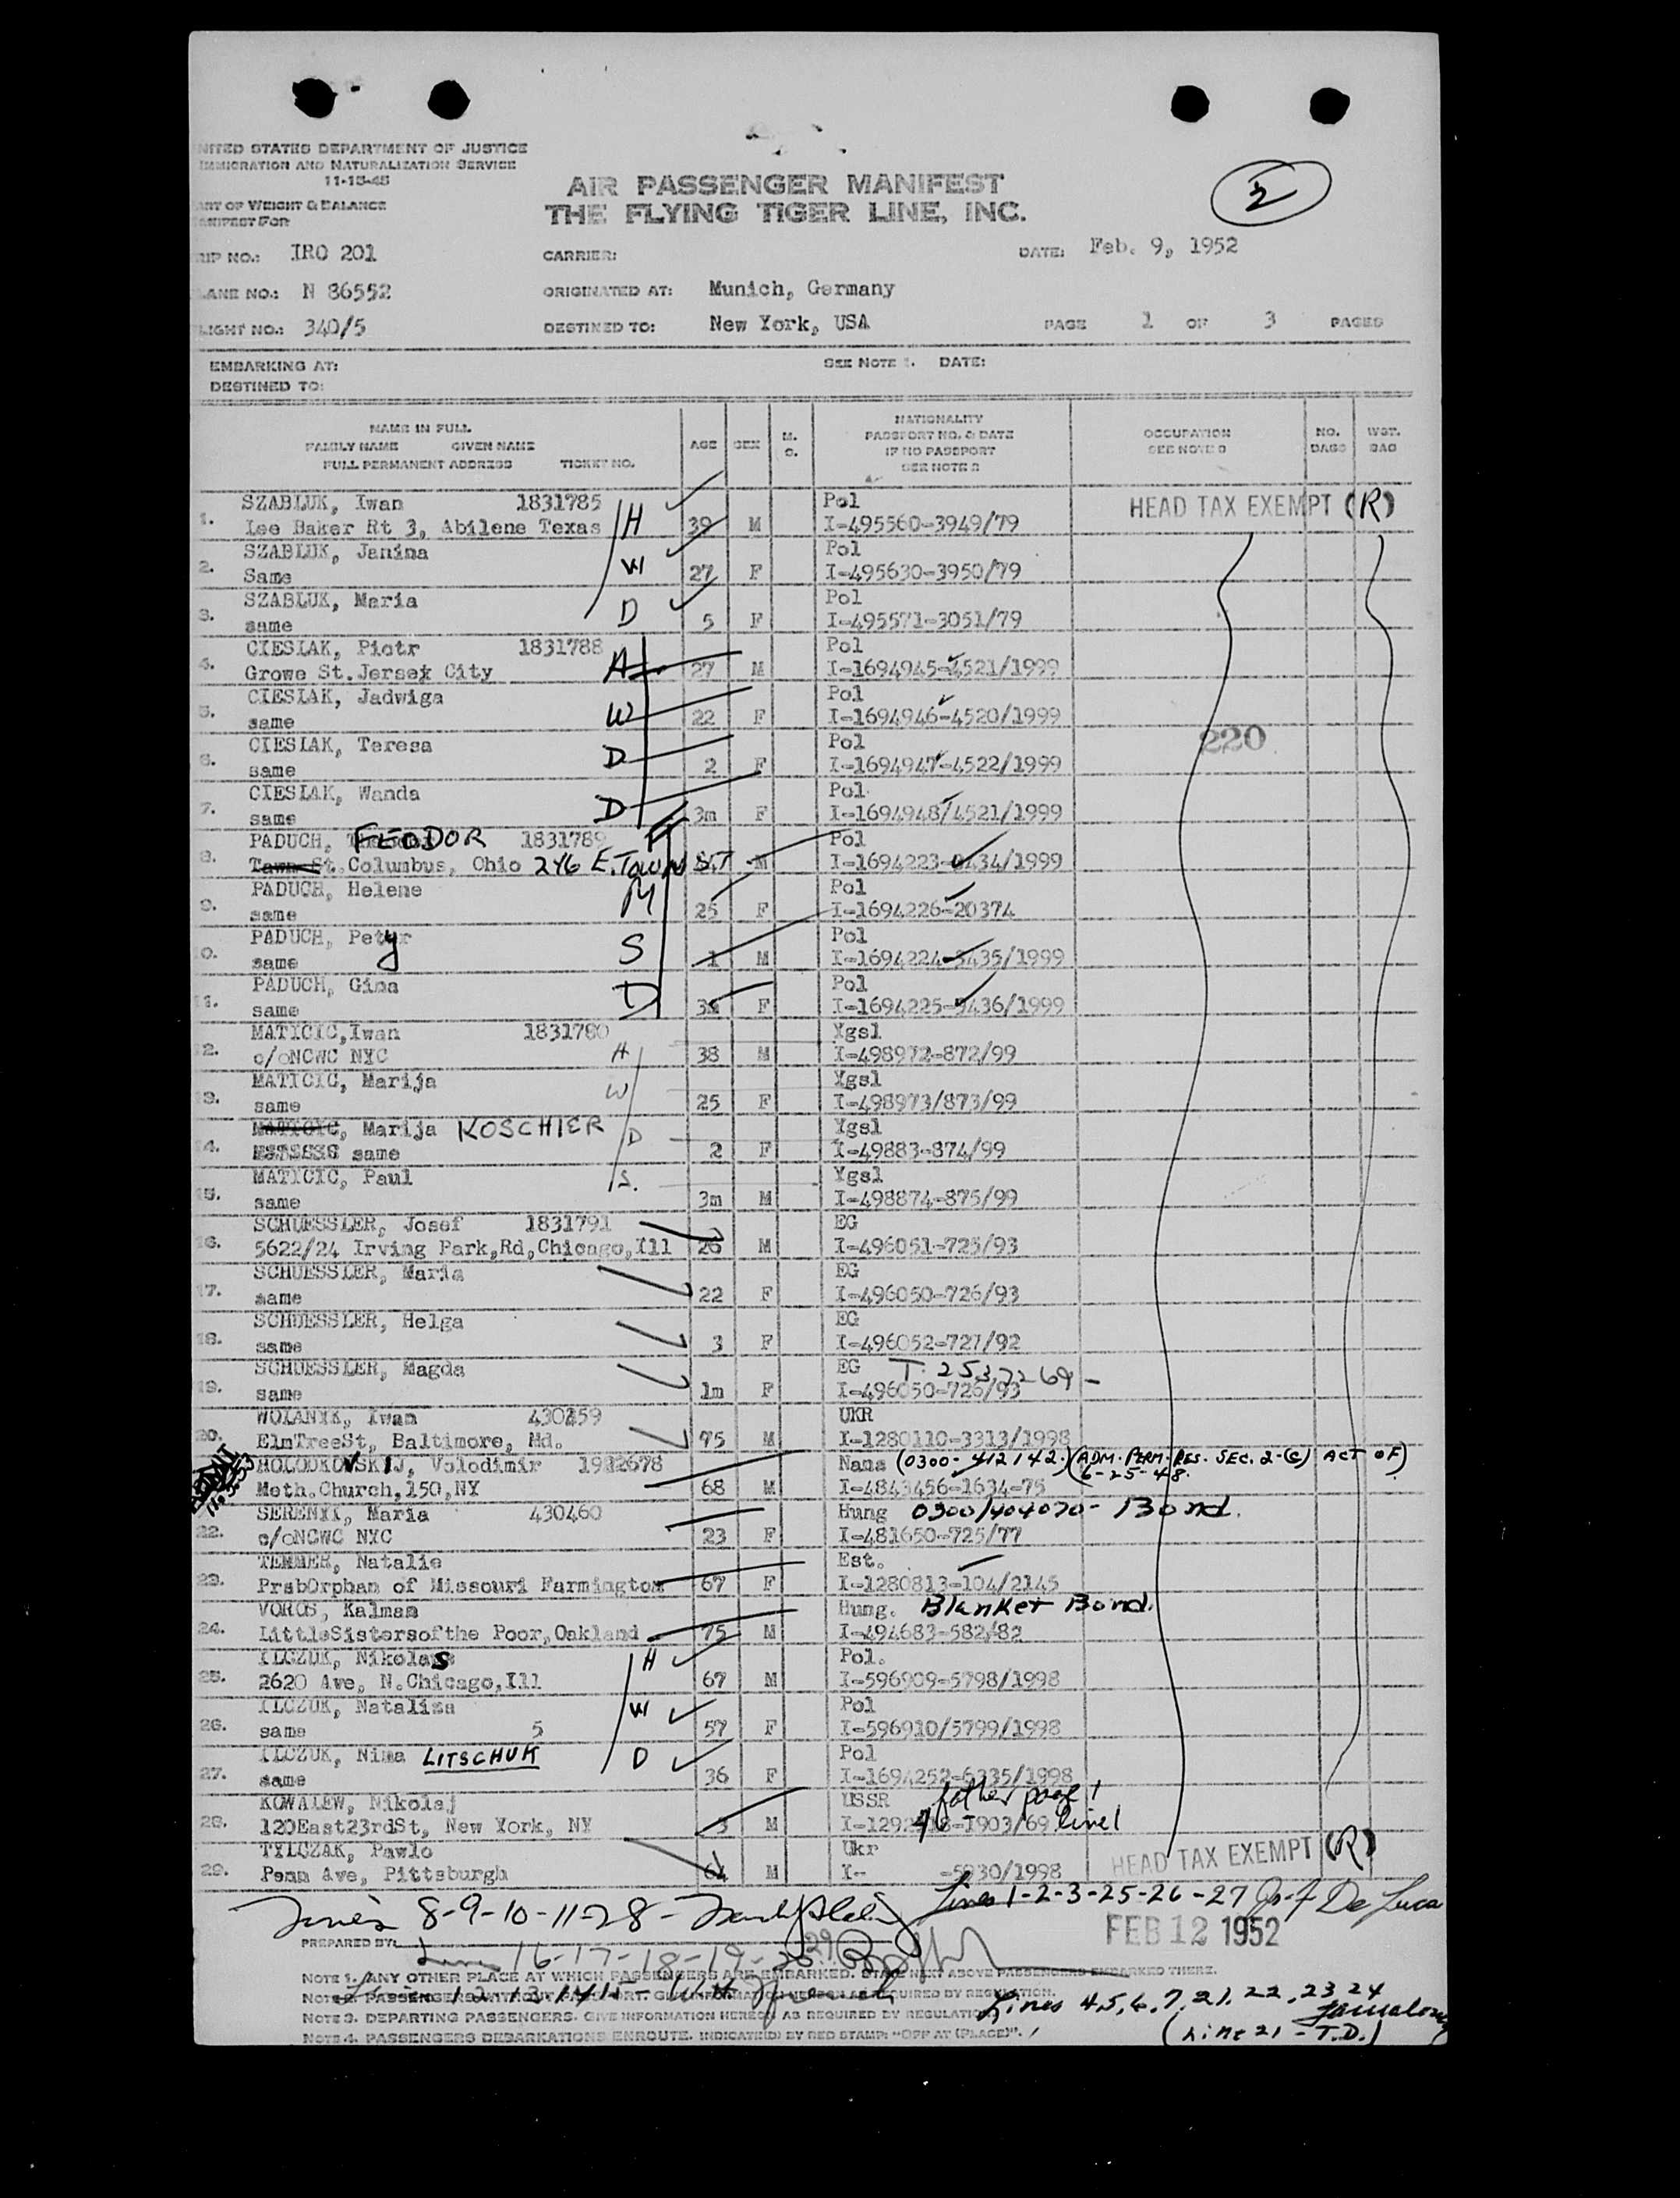 UNITED STATES DEPARTMENT OF JUSTICE
IMMIGRATION AND NATURALIZATION SERVICE
11-15-45
PART OF WEIGHT & BALANCE
MANIFEST FOR
AIR PASSENGER MANIFEST
THE FLYING TIGER LINE, INC.
2
TRIP NO.: IRO 201 CARRIER: DATE: Feb. 9, 1952
PLANE NO.: N 86552 ORIGINATED AT: Munich, Germany
FLIGHT NO.: 340/5 DESTINED TO: New York, USA PAGE 1 OF 3 PAGES
EMBARKING AT: SEE NOTE 1. DATE:
DESTINED TO:
NAME IN FULL
FAMILY NAME GIVEN NAME
FULL PERMANENT ADDRESS TICKET NO.
AGE SEX M. S.
NATIONALITY
PASSPORT NO. & DATE
IF NO PASSPORT
SEE NOTE 2
OCCUPATION
SEE NOTE 3
NO. BAGS
WGT. BAG
SZABLUK, Iwan 1831785 Pol HEAD TAX EXEMPT (R)
1. Lee Baker Rt 3, Abilene Texas H 39 M I-495560-3949/79
SZABLUK, Janina Pol
2. Same W 27 F I-495630-3950/79
SZABLUK, Maria Pol
3. same D 5 F I-495571-3051/79
CIESLAK, Piotr 1831788 Pol
4. Growe St. Jersex City 27 M I-1694945-4521/1999
CIESLAK, Jadwiga Pol
5. same W 22 F I-1694946-4520/1999
CIESLAK, Teresa Pol 220
6. same D 2 F I-1694947-4522/1999
CIESLAK, Wanda Pol
7. same D 3m F I-1694948/4521/1999
PADUCH, FEODOR 1831789 F Pol
8. Town St. Columbus, Ohio 246 E. TOWN ST M I-1694223- 434/1999
PADUCH, Helene Pol
9. same M 25 F I-1694226-20374
PADUCH, Petyr Pol
10. same S 1 M I-1694224-5435/1999
PADUCH, Gina Pol
11. same D F I-1694225-5436/1999
MATICIC, Iwan 1831780 Ygsl
12. c/oNCWC NYC H 38 M I-498972-872/99
MATICIC, Marija Ygsl
13. same W 25 F I-498973/873/99
MATICIC, Marija KOSCHIER Ygsl
14. same D 2 F I-49883-874/99
MATICIC, Paul Ygsl
15. same S. 3m M I-498874-875/99
SCHUESSLER, Josef 1831791 EG
16. 5622/24 Irving Park, Rd, Chicago, Ill 26 M I-496051-725/93
SCHUESSLER, Maria EG
17. same 22 F I-496050-726/93
SCHUESSLER, Helga EG
18. same 3 F I-496052-727/92
SCHUESSLER, Magda EG T. 2537269-
19. same 1m F I-496050-726/93
WOLANYK, Iwan 430259 UKR
20. ElmTreeSt, Baltimore, Md. 75 M I-1280110-3313/1998
HOLODKOVSKIJ, Volodimir 1912678 Nans (0300-412142.) (ADM. PERM. RES. SEC. 2-(C) ACT OF 6-25-48.)
Meth. Church, 150, NY 68 M I-4843456-1634-75
SERENYI, Maria 430460 Hung 0300/404070- Bond.
22. c/oNCWC NYC 23 F I-481650-725/77
TEMMER, Natalie Est.
23. PrsbOrphan of Missouri Farmington 67 F I-1280813-104/2145
VOROS, Kalman Hung. Blanket Bond.
24. LittleSistersofthe Poor, Oakland 75 M I-494683-582/82
ILCZUK, Nikolas Pol.
25. 2620 Ave, N. Chicago, Ill H 67 M I-596909-5798/1998
ILCZUK, Natalima Pol
26. same 5 W 57 F I-596910/5799/1998
ILCZUK, Nima LITSCHUK Pol
27. same D 36 F I-1694252-6335/1998
KOWALEW, Nikolaj USSR father page 1
28. 120East23rdSt, New York, NY 3 M line 1
TYLCZAK, Pawlo Ukr HEAD TAX EXEMPT (R)
29. Penn Ave, Pittsburgh 64 M I- -5930/1998
8-9-10-11-28- Lines 1-2-3-25-26-27 De Luca
PREPARED BY: 16-17-18-19-20-29 FEB 12 1952
NOTE 1. ANY OTHER PLACE AT WHICH PASSENGERS ARE EMBARKED. STATE NEXT ABOVE PASSENGERS EMBARKED THERE.
NOTE 2. PASSENGERS WITHOUT PASSPORT. GIVE INFORMATION HEREON AS REQUIRED BY REGULATION.
Lines 12-13-14-15-
NOTE 3. DEPARTING PASSENGERS. GIVE INFORMATION HEREON AS REQUIRED BY REGULATION.
Lines 4,5,6,7,21,22,23 24
NOTE 4. PASSENGERS DEBARKATIONS ENROUTE. INDICATE(D) BY RED STAMP: "OFF AT (PLACE)".
(Line 21 - T.D.)